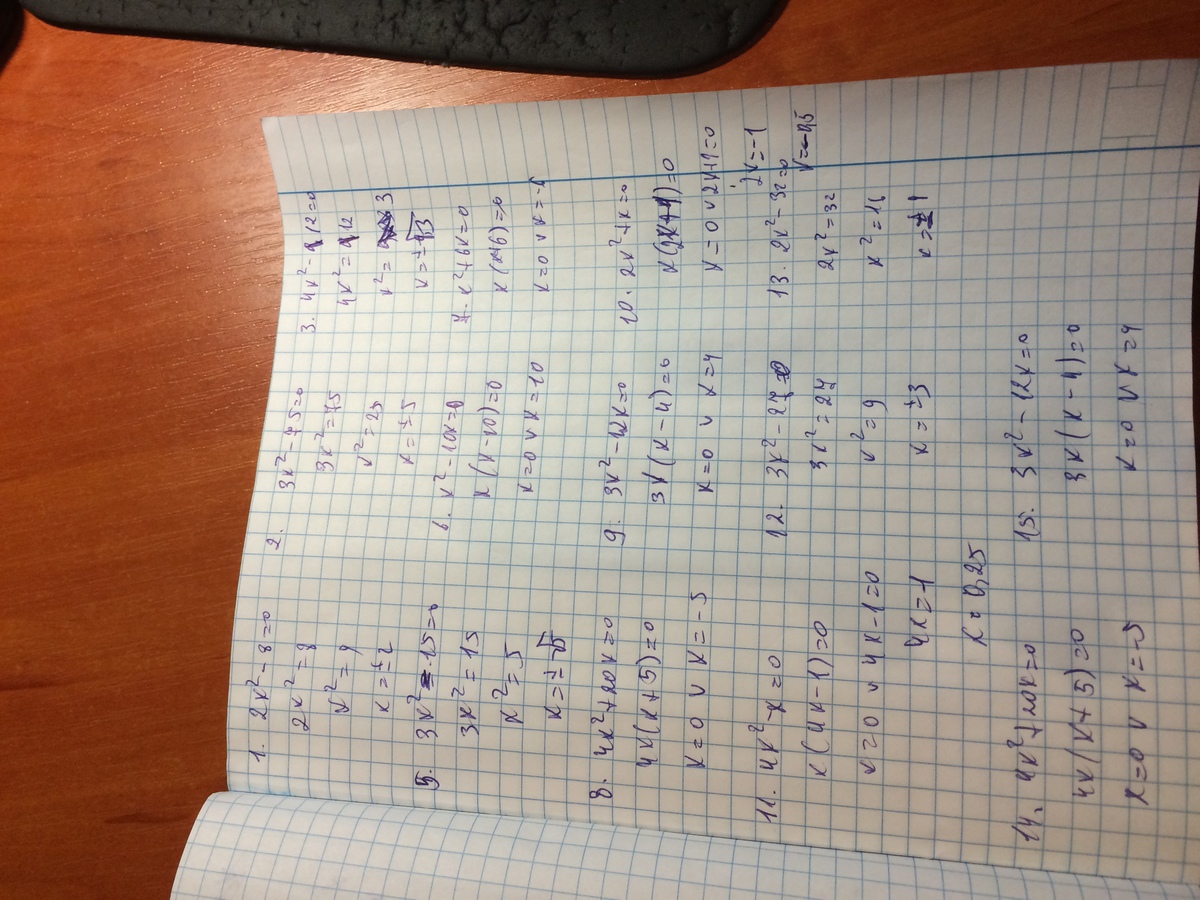 1. 2x²-8=0
2x²=8
x²=4
x=±2
2. 3x²-75=0
3x²=75
x²=25
x=±5
3. 4x²-12=0
4x²=12
x²=3
x=±√3
5. 3x²-15=0
3x²=15
x²=5
x=±√5
6. x²-10x=0
x(x-10)=0
x=0 v x=10
7. x²+6x=0
x(x+6)=0
x=0 v x=-6
8. 4x²+20x=0
4x(x+5)=0
x=0 v x=-5
9. 3x²-12x=0
3x(x-4)=0
x=0 v x=4
10. 2x²+x=0
x(2x+1)=0
x=0 v 2x+1=0
2x=-1
x=-0,5
11. 4x²-x=0
x(4x-1)=0
x=0 v 4x-1=0
4x=1
x=0,25
12. 3x²-27=0
3x²=27
x²=9
x=±3
13. 2x²-32=0
2x²=32
x²=16
14. 4x²+20x=0
4x(x+5)=0
x=0 v x=-5
15. 3x²-12x=0
3x(x-4)=0
x=0 v x=4